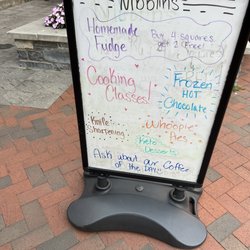 Homemade
Fudge
Buy 4 squares
get 2 Free!
Cooking
Classes!
Frozen
HOT
Chocolate
Knife
Sharpening
Whoopie
Pies
Keto
Desserts
Ask about our Coffee
of the Day!